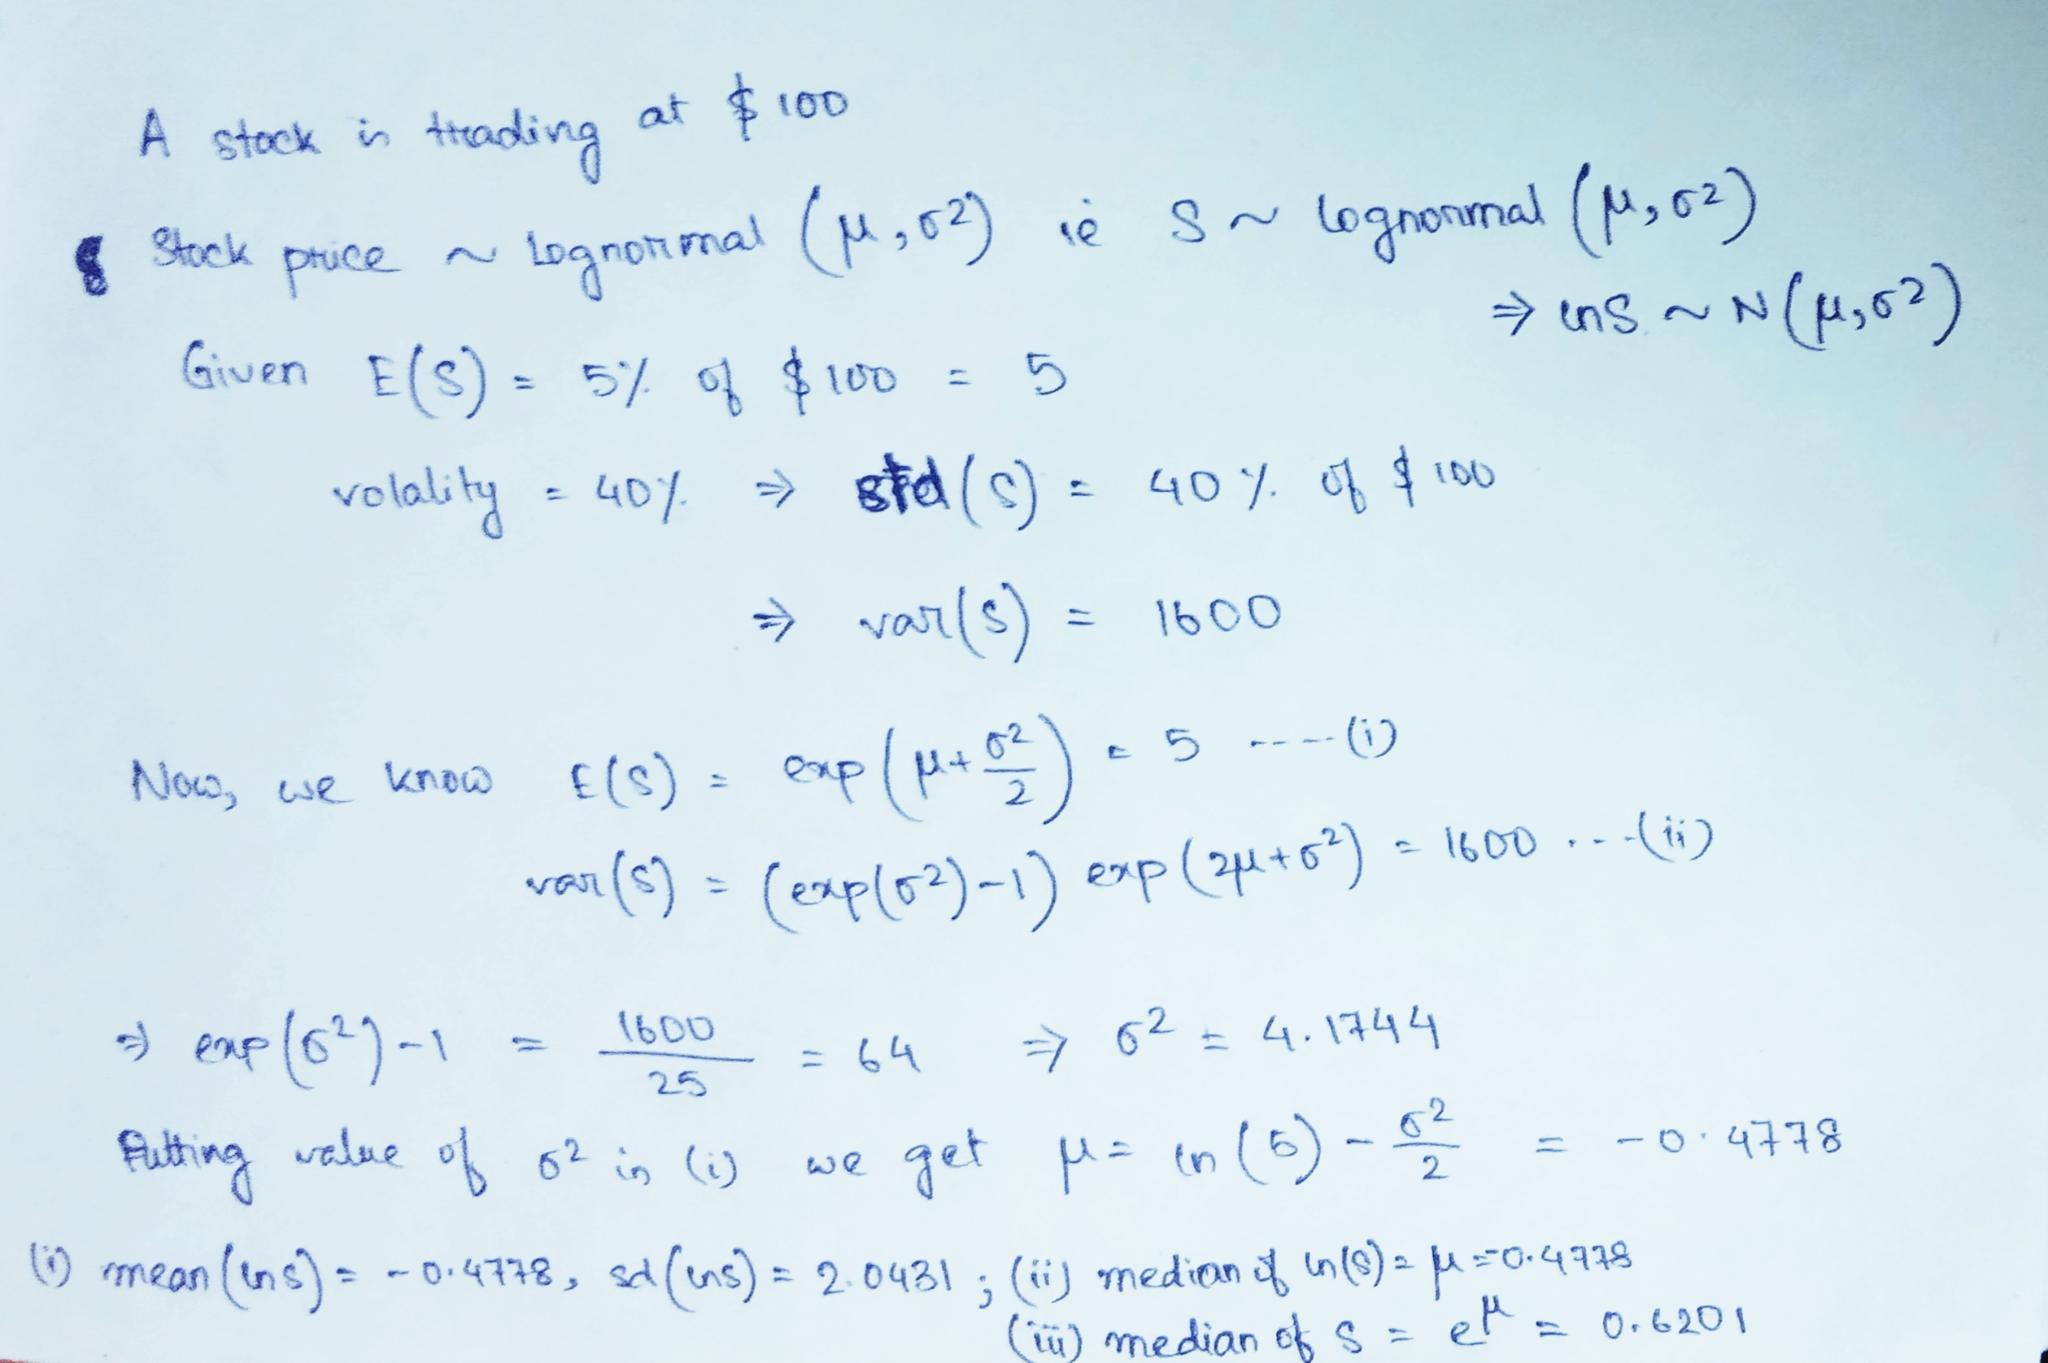 A stock is trading at $ 100
Stock price ~ Lognormal (μ, σ²) ie S ~ lognormal (μ, σ²)
⇒ lnS ~ N(μ, σ²)
Given E(S) = 5% of $100 = 5
volality = 40% ⇒ std(S) = 40% of $100
⇒ var(S) = 1600
Now, we know E(S) = exp(μ + σ²/2) = 5 ----(i)
var(S) = (exp(σ²)-1) exp(2μ+σ²) = 1600 ...(ii)
⇒ exp(σ²)-1 = 1600/25 = 64 ⇒ σ² = 4.1744
Putting value of σ² in (i) we get μ = ln(5) - σ²/2 = -0.4778
(i) mean(lns) = -0.4778, sd(lns) = 2.0431 ; (ii) median of ln(s) = μ = -0.4778
(iii) median of s = e^μ = 0.6201